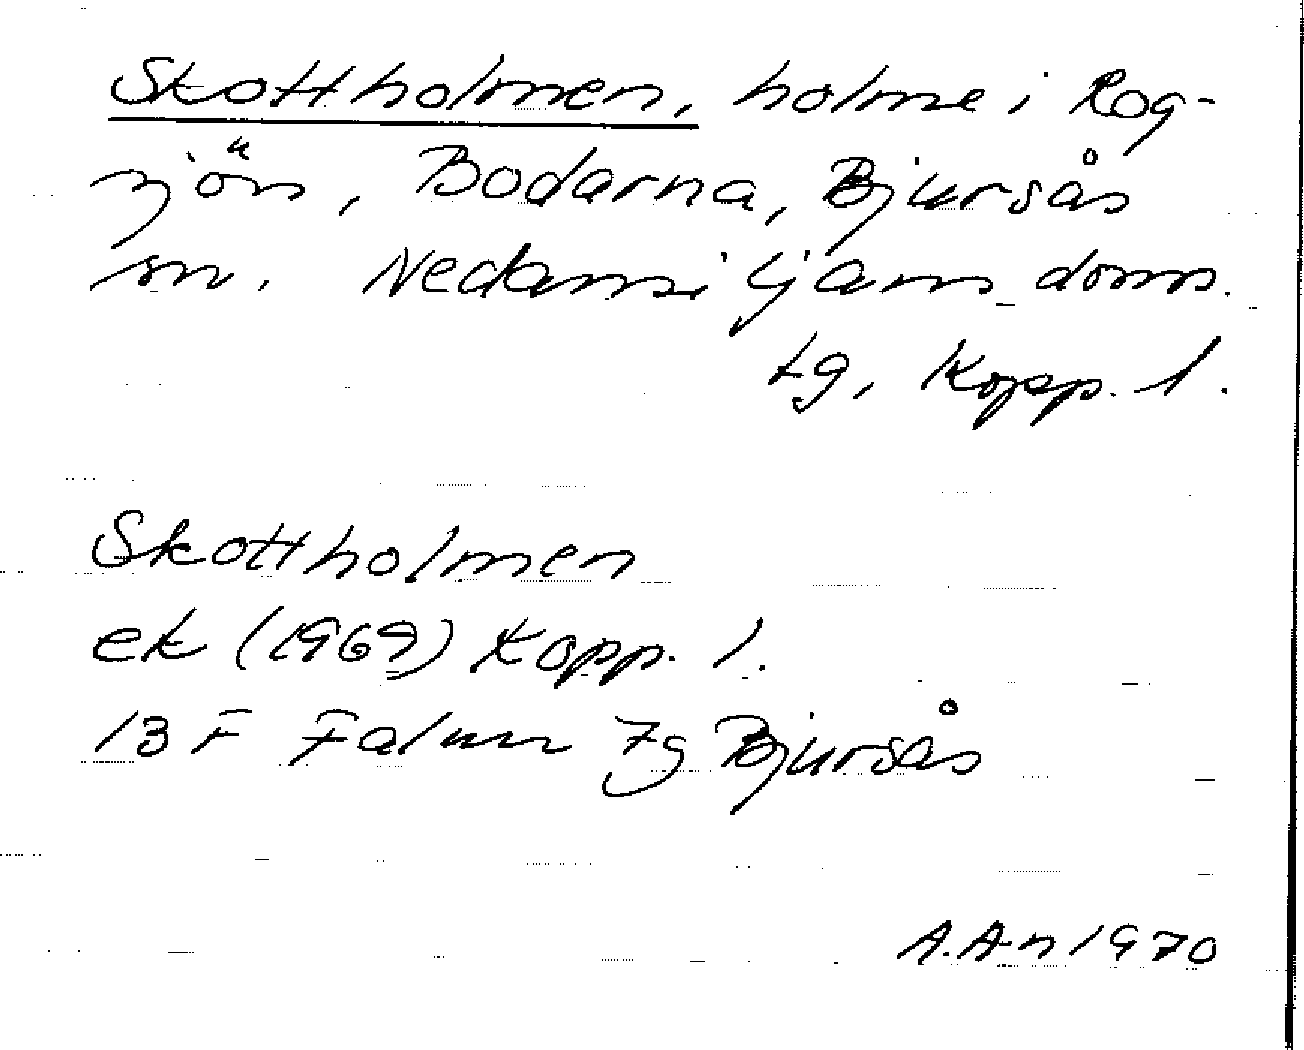 Skottholmen, holme i Rog-
sjön, Bodarna, Bjursås
sn. Nedansiljans doms.
tg, Kopp. l.
Skottholmen
ek (1969) Kopp. l.
13 F Falun 7g Bjursås
A.A-n 1970